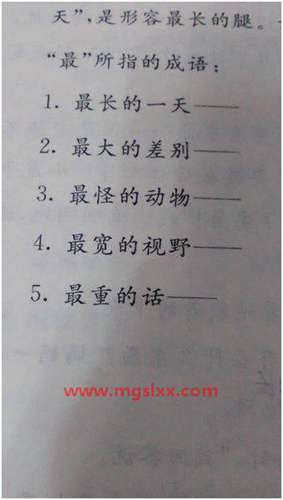 天”,是形容最长的腿。
“最”所指的成语:
1. 最长的一天——
2. 最大的差别——
3. 最怪的动物——
4. 最宽的视野——
5. 最重的话——
www.mgslxx.com